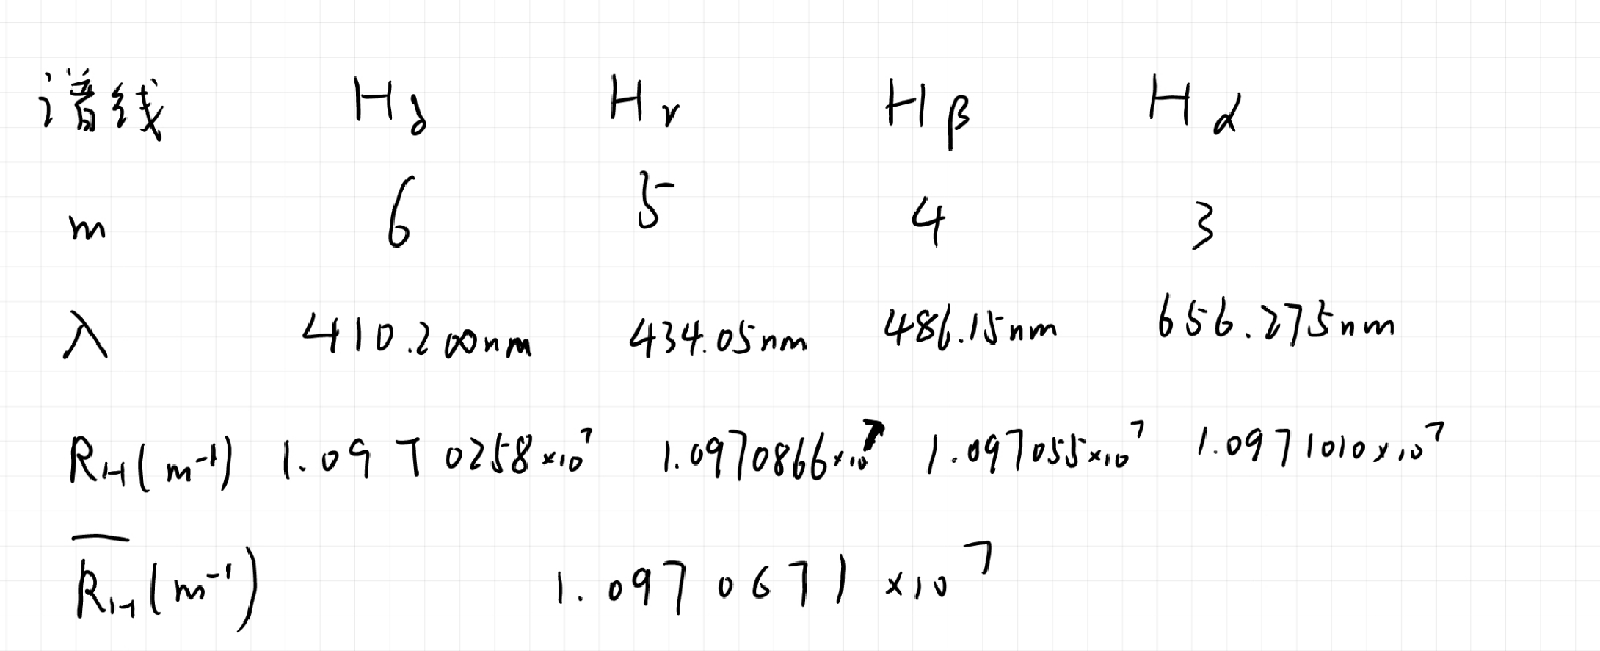 谱线 Hδ Hγ Hβ Hα
m 6 5 4 3
λ 410.200nm 434.05nm 486.15nm 656.275nm
R_H(m⁻¹) 1.0970258×10⁷ 1.0970866×10⁷ 1.097055×10⁷ 1.0971010×10⁷
R̅_H(m⁻¹) 1.0970671×10⁷